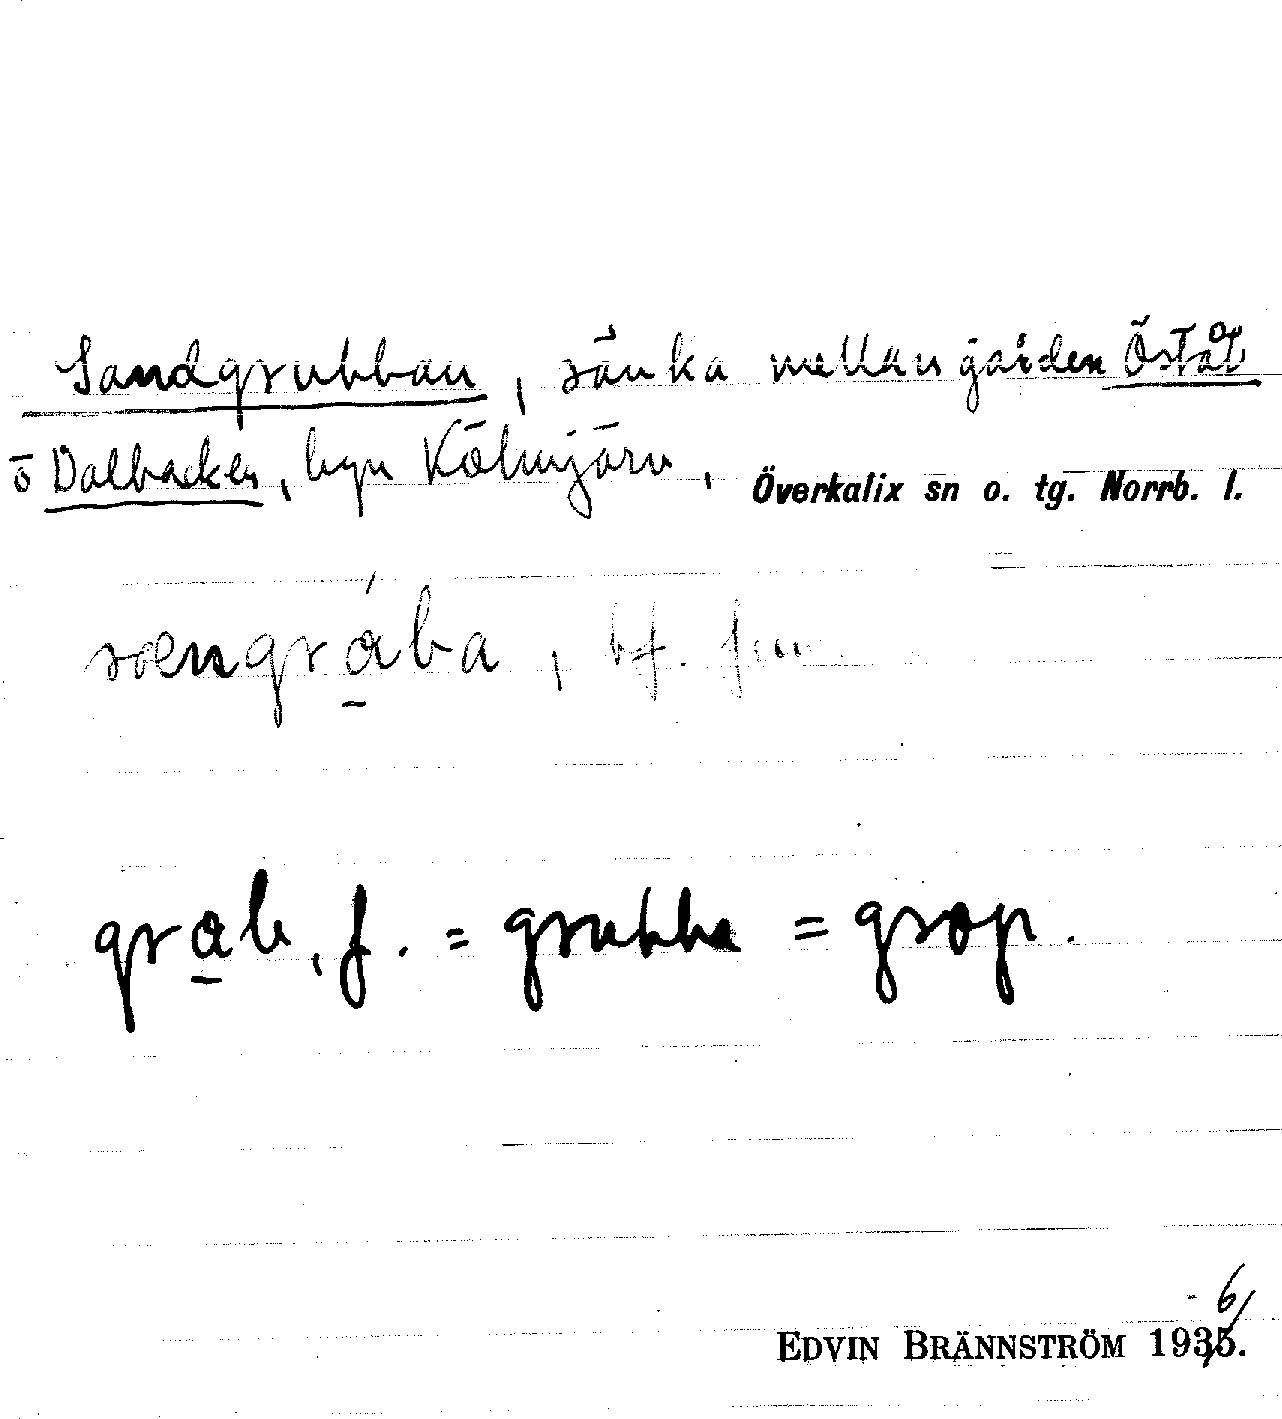 Sandgrubban, sänka mellan gården Öståt
o Dalbacken, byn Kölmjärv,
Överkalix sn o. tg. Norrb. l.
sœngrába, bf. fem.
grab, f. = grubba = grop.
EDVIN BRÄNNSTRÖM 1935.
-6/